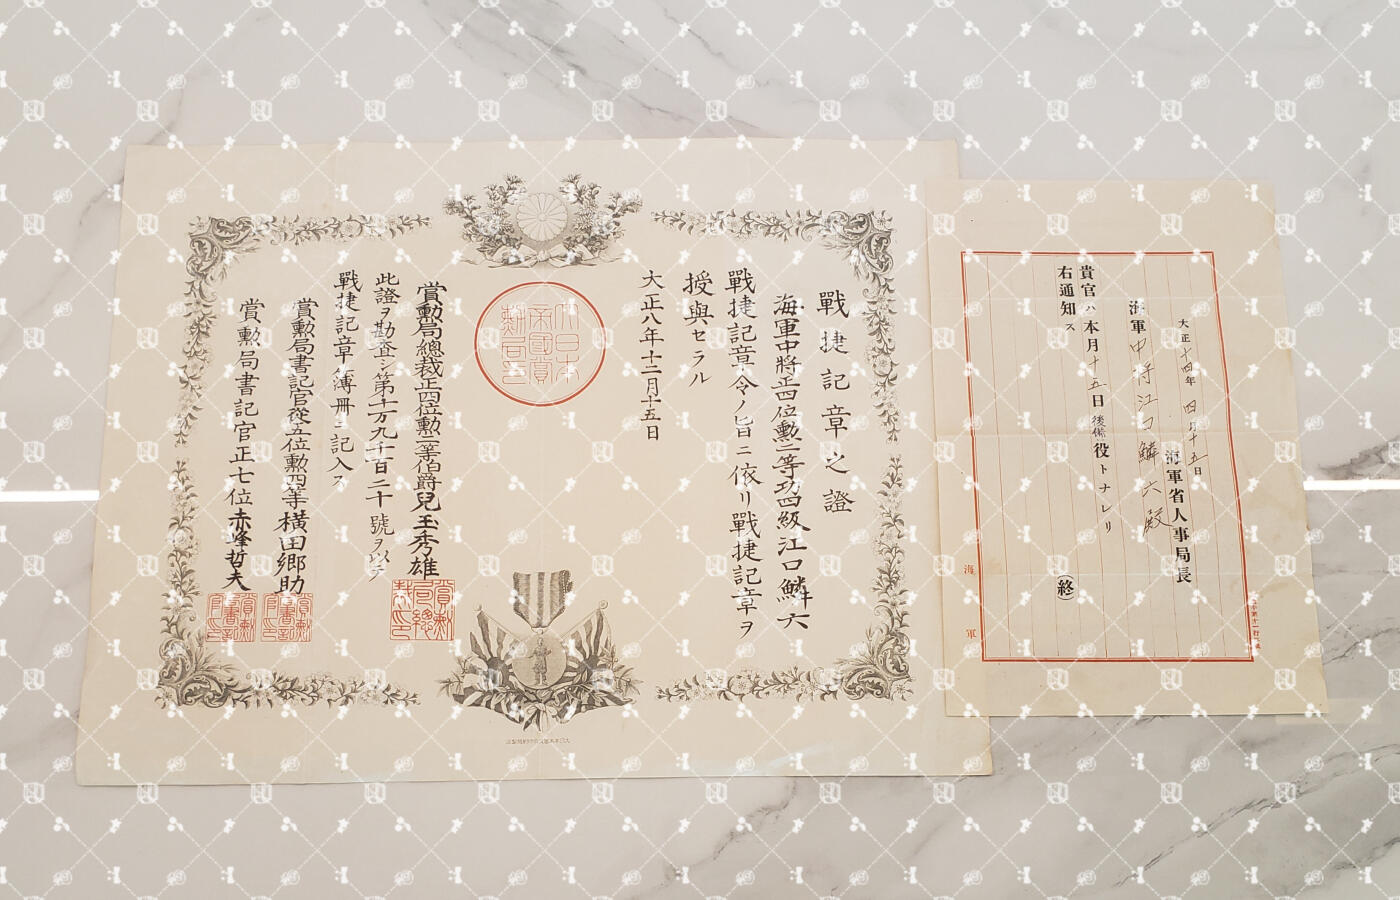 戰捷記章之證
海軍中將正四位勲二等功四級江口鱗六
戰捷記章令ノ旨ニ依リ戰捷記章ヲ
授與セラル
大正八年十二月十五日
大日本
帝國賞
勲局印
賞勲局總裁正四位勲二等伯爵兒玉秀雄
此證ヲ勘査シ第十万九千百二十號ヲ以テ
戰捷記章簿册ニ記入ス
賞勲局書記官從五位勲四等横田郷助
賞勲局書記官正七位赤峰哲夫
大正十四年四月十五日
海軍省人事局長
海軍中將江口鱗六殿
貴官ハ本月十五日後備役トナレリ
右通知ス
(終)
海軍